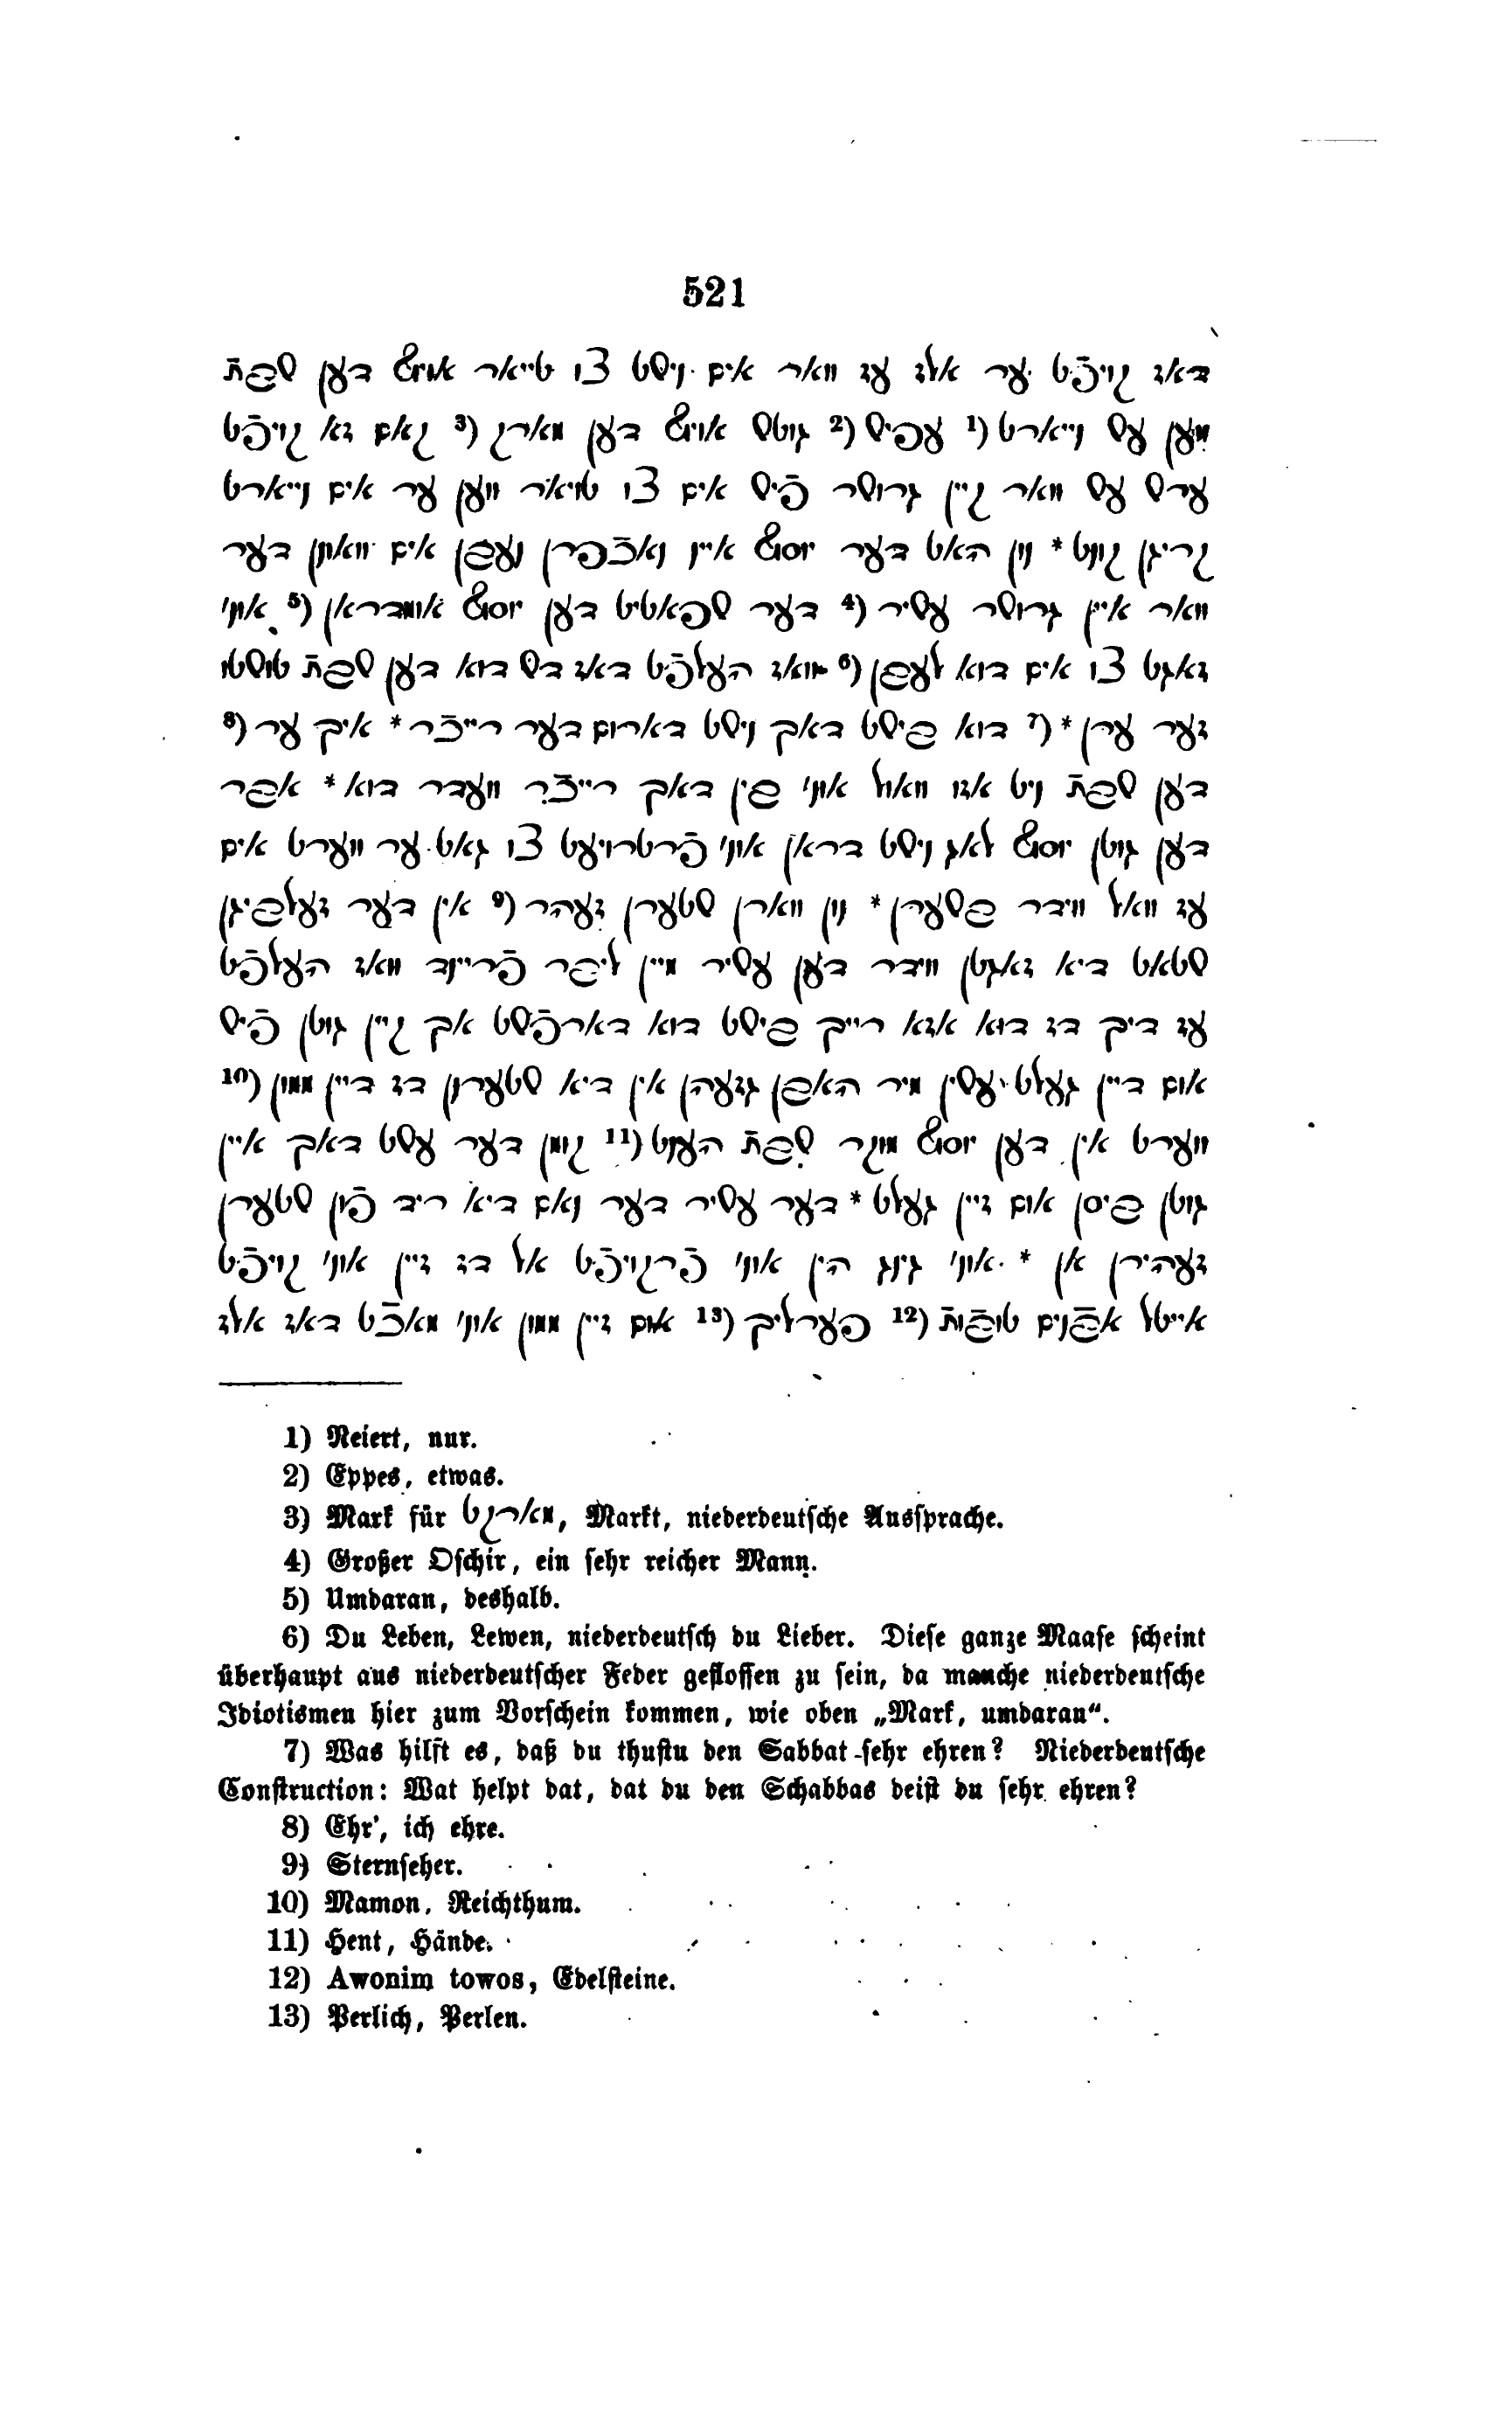 521
דאז קויפֿט ער אלז עז וואר אים נישט צו טייאר אויף דען שבתֿ
ווען עש נייארט (1 עפיש (2 גוטש אויף דען מארק (3 קאם זא קויפֿט
ערש עש וואר קיין גרושר פֿיש אים צו טויאר ווען ער אים נייארט
קריגן קונט * נון האט דער יוסף איין נאכֿפרן נעבן אים וואונן דער
וואר איין גרושר עשיר (4 דער שפאטיט דען יוסף אומדראן (5 אונ'
זאגט צו אים דוא לעבן (6 וואז העלפֿט דאז דש דוא דען שבתֿ טושטו
זער ערן * (7 דוא בישט דאך נישט דארום דער רייכֿר * איך ער (8
דען שבתֿ ניט אזו וואול אונ' בין דאך רייכֿר וועדר דוא * אבר
דען גוטן יוסף לאג נישט דראן אונ' פֿרטרויעט צו גאט ער ווערט אים
עז וואל ווידר בשערן * נון ווארן שטערן זעהר (9 אין דער זעלביגן
שטאט דיא זאגטן ווידר דען עשיר מיין ליבר פֿריינד וואז העלפֿט
עז דיך דז דוא אזא רייך בישט דוא דארפֿשט אך קיין גוטן פֿיש
אום דיין געלט עשין מיר האבן גזעהן אין דיא שטערן דז דיין ממון (10
ווערט אין דען יוסף מוקר שבתֿ הענט (11 קומן דער עשט דאך איין
גוטן ביסן אום זיין געלט * דער עשיר דער נאם דיא ריד פֿון שטערן
זעהירן אן * אונ' גינג הין אונ' פֿרקויפֿט אל דז זיין אונ' קויפֿט
אייטל אבֿנים טובֿותֿ (12 פערליך (13 אום זיין ממון אונ' מאכֿט דאז אלז
1) Neiert, nur.
2) Eppes, etwas.
3) Mark für מארקט, Markt, niederdeutsche Aussprache.
4) Großer Oschir, ein sehr reicher Mann.
5) Umdaran, deshalb.
6) Du Leben, Lewen, niederdeutsch du Lieber. Diese ganze Maase scheint
überhaupt aus niederdeutscher Feder geflossen zu sein, da manche niederdeutsche
Idiotismen hier zum Vorschein kommen, wie oben „Mark, umdaran“.
7) Was hilft es, daß du thustu den Sabbat sehr ehren? Niederdeutsche
Construction: Wat helpt dat, dat du den Schabbas deist du sehr ehren?
8) Ehr', ich ehre.
9) Sternseher.
10) Mamon, Reichthum.
11) Hent, Hände.
12) Awonim towos, Edelsteine.
13) Perlich, Perlen.